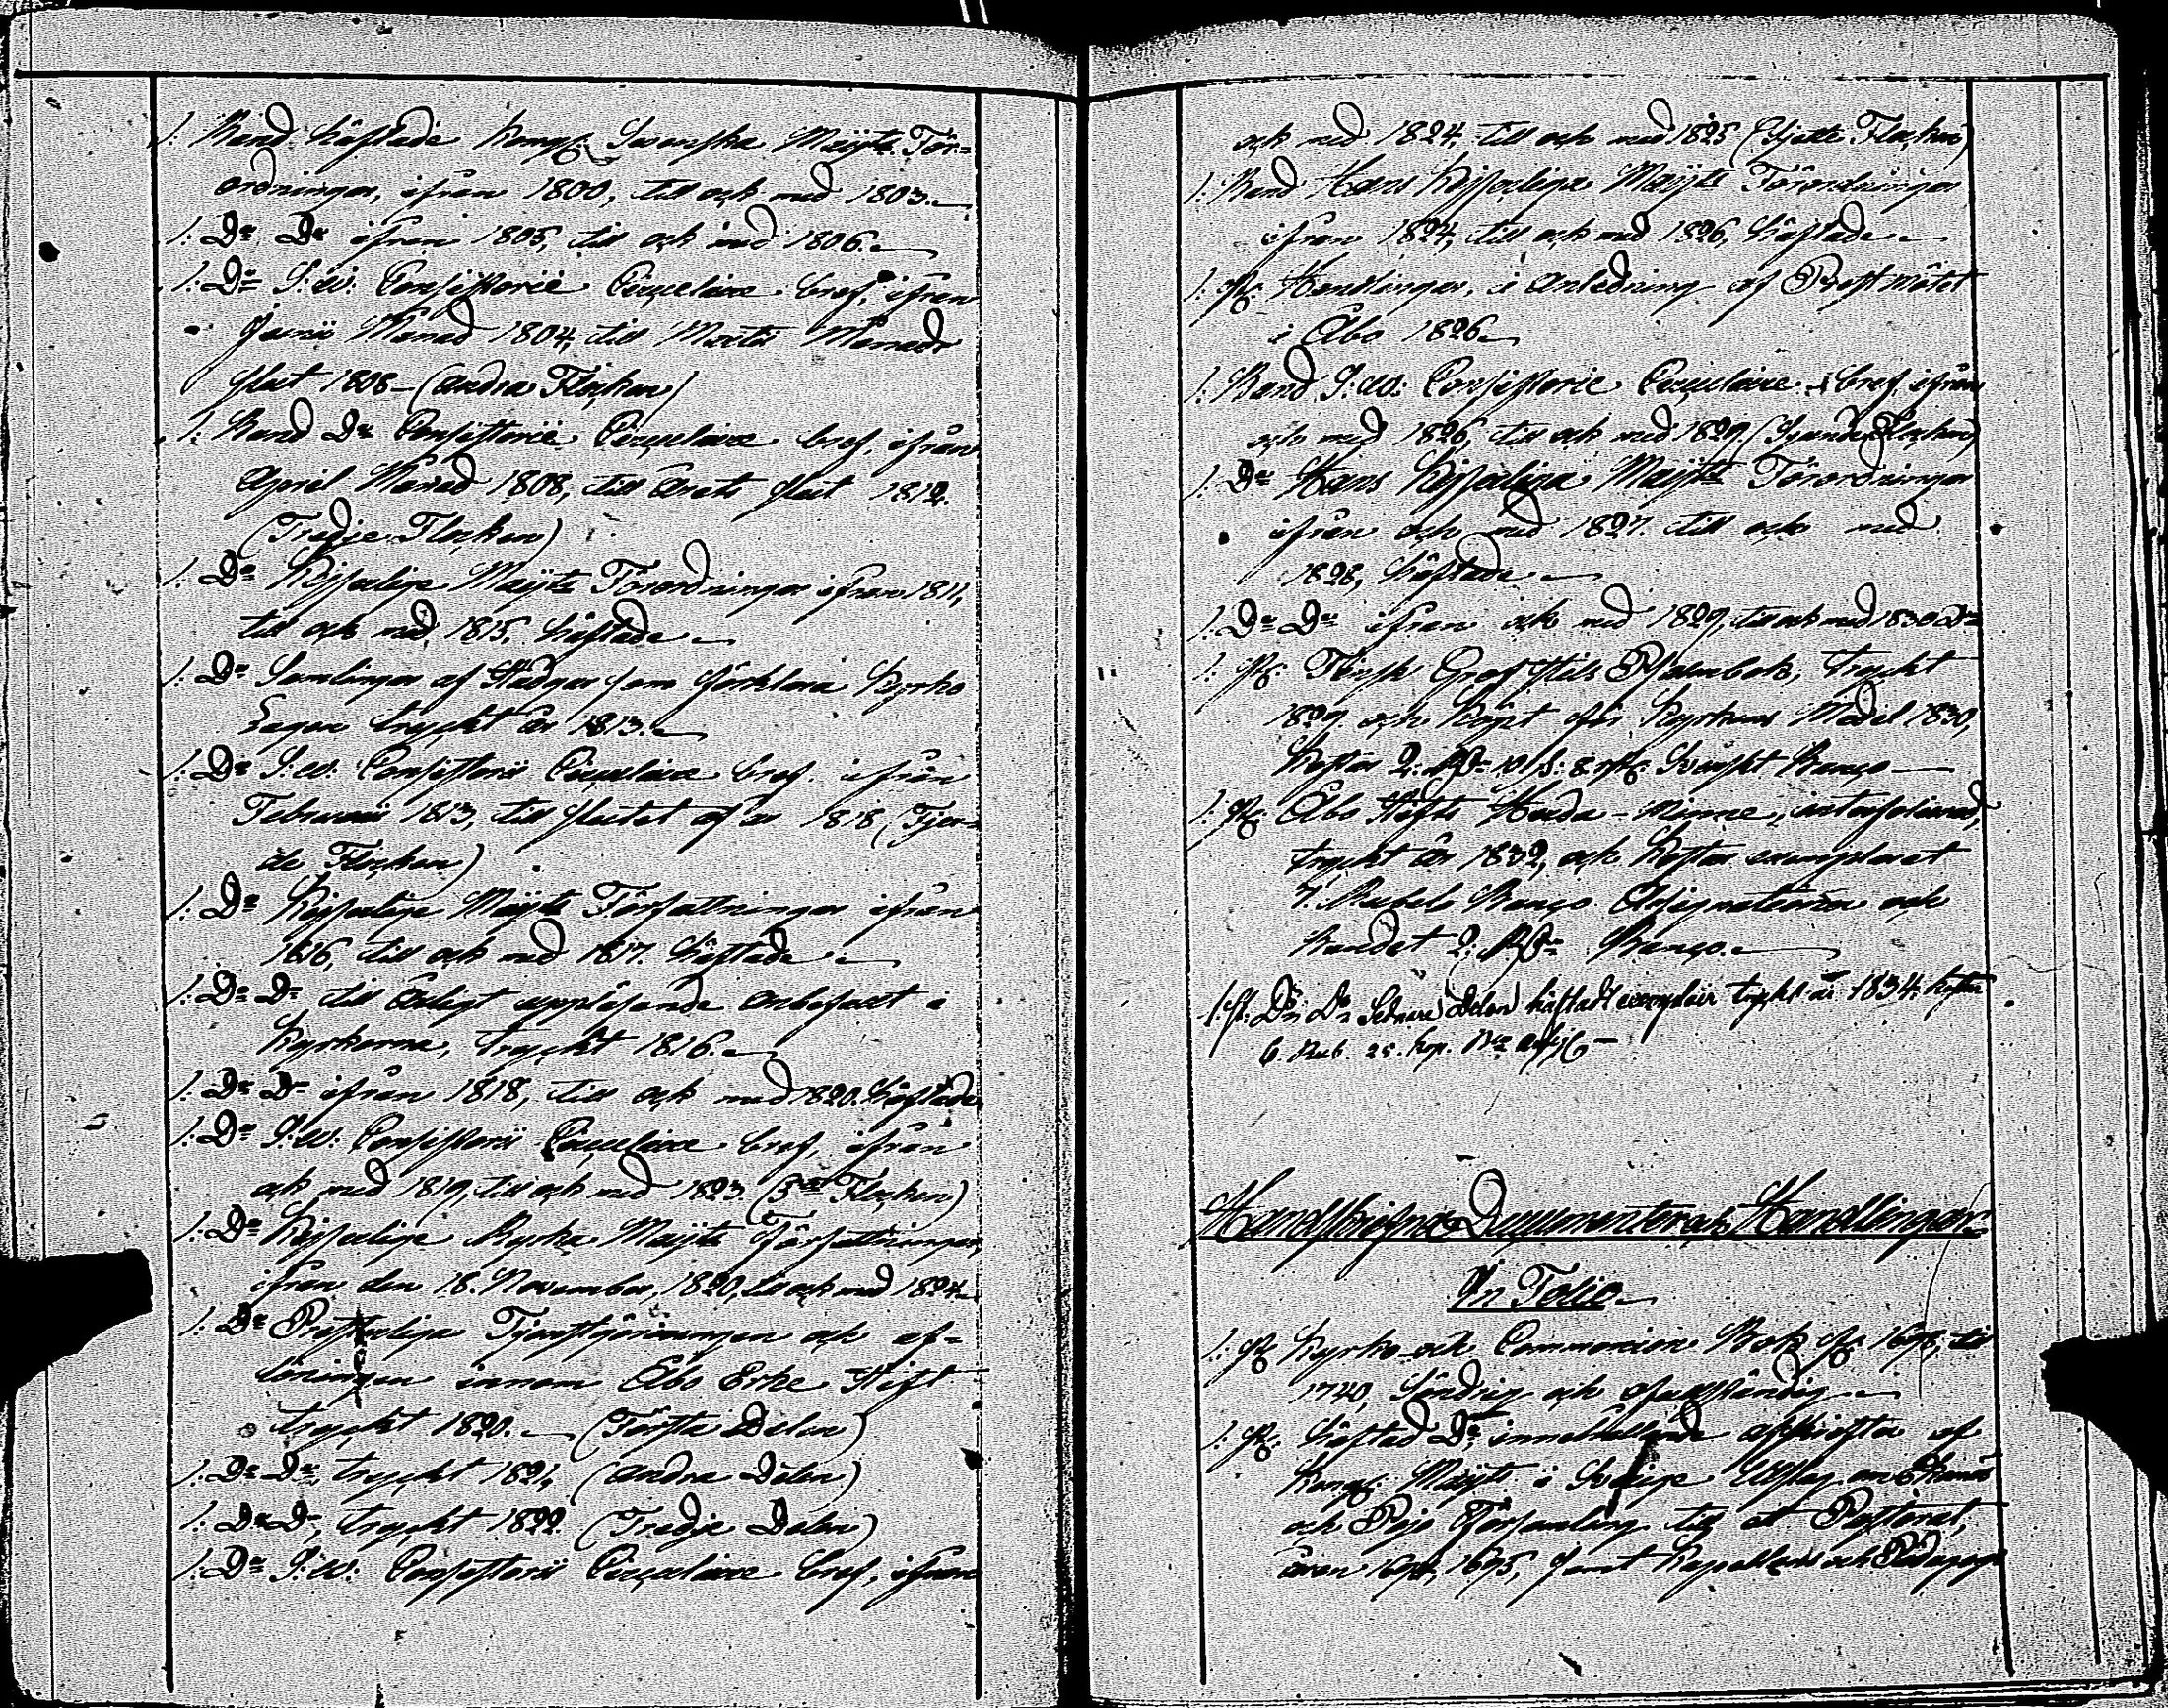 1. Band häftade Kongl. Svenska Maij:ts För=
ordningar, ifrån 1800, till och med 1803.
1. Do Do ifrån 1805, till och med 1806.
1. Do S:W: Consistorii Circulaire bref, ifrån
Junii Månad 1804, till Martii Månads
slut 1808 (Andra Flocken)
1. Band Do Consistorii Circulaire bref, ifrån
April Månad 1808, till årets slut 1812.
(Tredje Flocken)
1. Do Kejserliga Maij:ts Förordningar ifrån 1811,
till och med 1815, häftade
1. Do Samlingar af Stadgar som förklara Kyrko
Lagen tryckt år 1813.
1. Do S:W: Consistorii Circulaire bref ifrån
Februarii 1813, till slutet af år 1818 (Fjer=
de Flocken)
1. Do Kejserliga Maij:ts Författningar ifrån
1816, till och med 1817. häftade
1. Do Do till årligt uppläsande anbefalt i
Kyrkorna, tryckt 1816.
1. Do Do ifrån 1818, till och med 1820. häftade
1. Do S:W: Consistorii Circulaire bref, ifrån
och med 1819, till och med 1823. (5te Flocken)
1. Do Kejserliga Ryska Maij:ts Författningar,
ifrån den 18. November, 1820, till och med 1824.
1. Do Presterliga Tjenstgöringen och af=
löningen innom Åbo Erke Stift
tryckt 1820. (Första Delen)
1. Do Do, tryckt 1821, (Andra Delen)
1. Do Do, tryckt 1822 (Tredje Delen)
1. Do S:W: Consistorii Circulaire bref, ifrån
och med 1824, till och med 1825 (Sjette Flocken)
1. Band Hans Kejserliga Maij:ts Förordningar
ifrån 1824, till och med 1826, häftade
1. St: Handlingar, i Anledning af Prestmötet
i Åbo 1826
1. Band S:W: Consistorii Circulaire bref, ifrån
och med 1826, till och med 1829. (Sjunde Flocken)
1. Do Hans Kejserliga Maij:ts Förordningar
ifrån och med 1827. till och med
1828, häftade
1. Do Do ifrån och med 1829, till och med 1830 Do
1. St: Finsk Grof Stils Psalmbok, tryckt
1829 och köpt för Kyrkans Medel 1830,
kostar 2: RD 10 s: 8 rst: Svenskt Banco
1. St: Åbo Stifts Herda-Minne, interfolierad,
tryckt år 1832, och kostar exemplaret
7. Rubels Banco Assignationer och
Bandet 2: RD Banco.
1. st. Do Do Sednare Delen häftadt exemplair tryckt år 1834. kostar
6. Rub. 25. kop. Bco Ass:
Handskrefne Documenter och Handlingar
In Folio
1. St Kyrko och Communion Bok fr: 1698, till
1740, Söndrig och ofullständig
1. St: häftad Do, innehållande afskrifter af
Kongl: Maij:ts i Sverige Utslag om
och Pojo Församling till et Pastorat,
åren 1694, 1695, samt Kapellans och Pedagogi